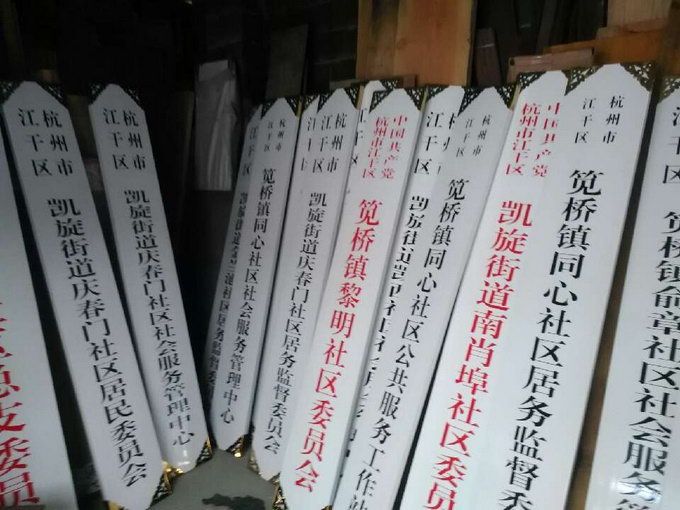 总支委
杭州市
江干区
凯旋街道庆春门社区居民委员会
杭州市
江干区
凯旋街道庆春门社区社会服务管理中心
江干区
社区居务监督委
杭州市
江干区
笕桥镇同心社区社会服务管理中心
杭州市
江干区
凯旋街道庆春门社区居务监督委员会
中国共产党
杭州市江干区
笕桥镇黎明社区委员会
江干区
凯旋街道
杭州市
江干区
笕桥镇同心社区公共服务工作站
中国共产党
杭州市江干区
凯旋街道南肖埠社区委员
杭州市
江干区
笕桥镇同心社区居务监督委
杭州市
江干区
笕桥镇俞章社区社会服务